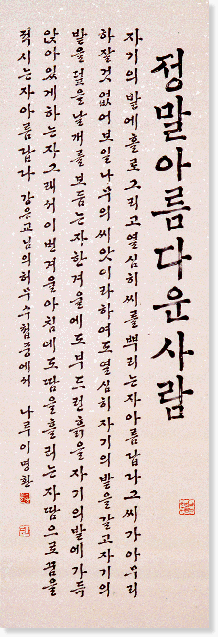 정말아름다운사람
자기의 밭에 홀로 그리고 열심히 씨를 뿌리는 자 아름답다 그 씨가 아무리
하잘것 없어 보일 나무의 씨앗이라 하여도 열심히 자기의 밭을 갈고 자기의
밭을 덮을 날개를 보듬는 자 한겨울에도 부드런 흙을 자기의 밭에 가득
앉아 있게 하는 자 그래서 이번 겨울 아침에도 땀을 흘리는 자 땀으로 꿈을
적시는 자 아름답다 강은교님의 허무수첩중에서 나루 이명환